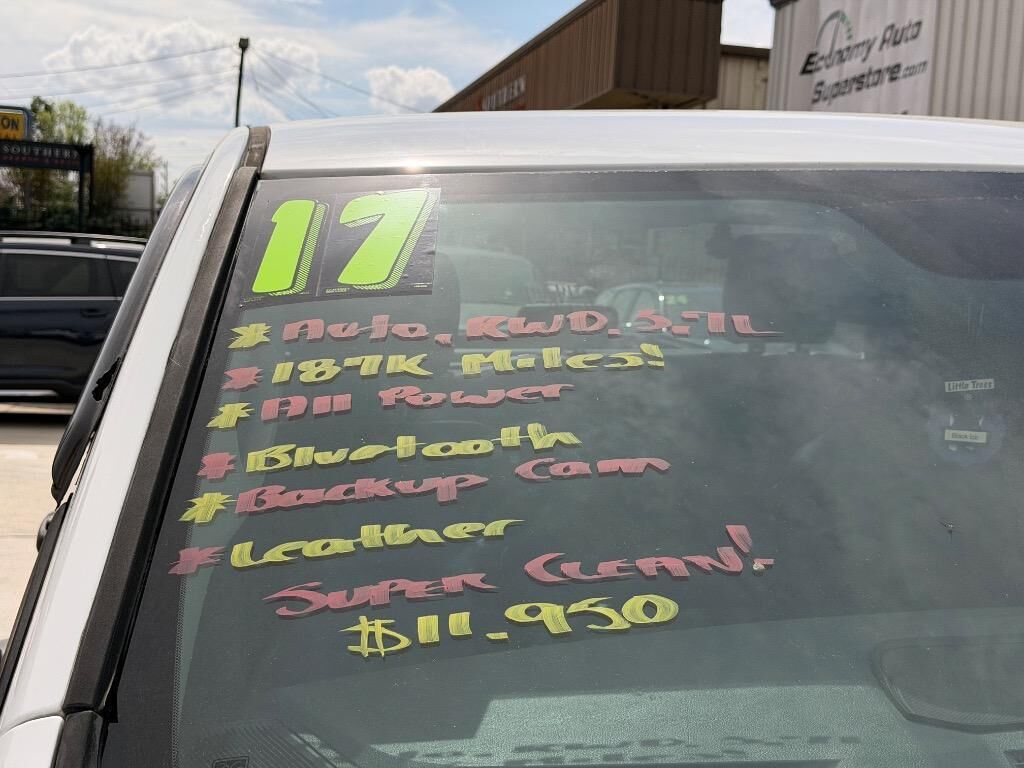 Economy Auto
Superstore.com
SOUTHERN
ON
SOUTHERN
17
* Auto, RWD, 5.7L
* 187K Miles!
* All Power
* Bluetooth
* Backup Cam
* Leather
SUPER CLEAN!
$11,950
Little Trees
Black Ice